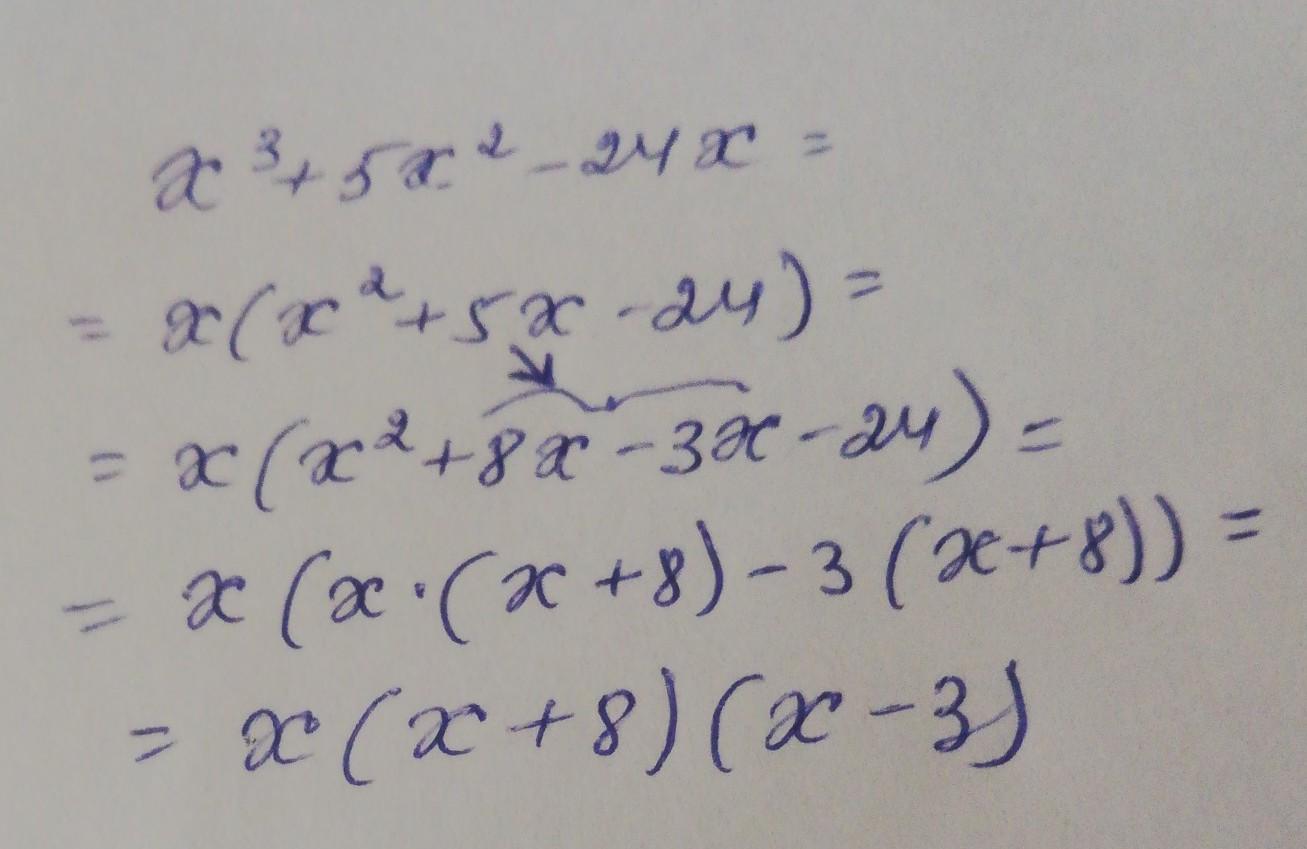 x³+5x²-24x=
=x(x²+5x-24)=
=x(x²+8x-3x-24)=
=x(x·(x+8)-3(x+8))=
=x(x+8)(x-3)